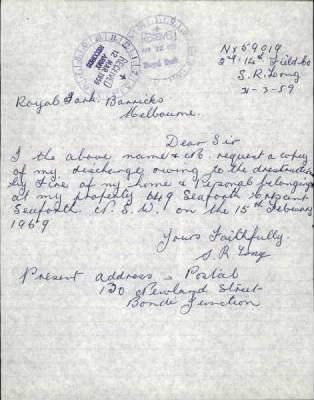 RECEIVED
12 MAR 1959
ARMY
RECORDS
RECEIVED
NX59019
2/14th Field Co
S. R. Long
Royal Park Barricks
Melbourne.
Dear Sir
I the above name & No. request a copy
of my discharge owing to the destruction
by Fire of my home & Personal belongings
at my property 649 Seaforth Crescent
Seaforth N.S.W. on the 15th February
1959
Yours Faithfully.
S. R Long
Present address Postal
130 Newland Street
Bondi Junction